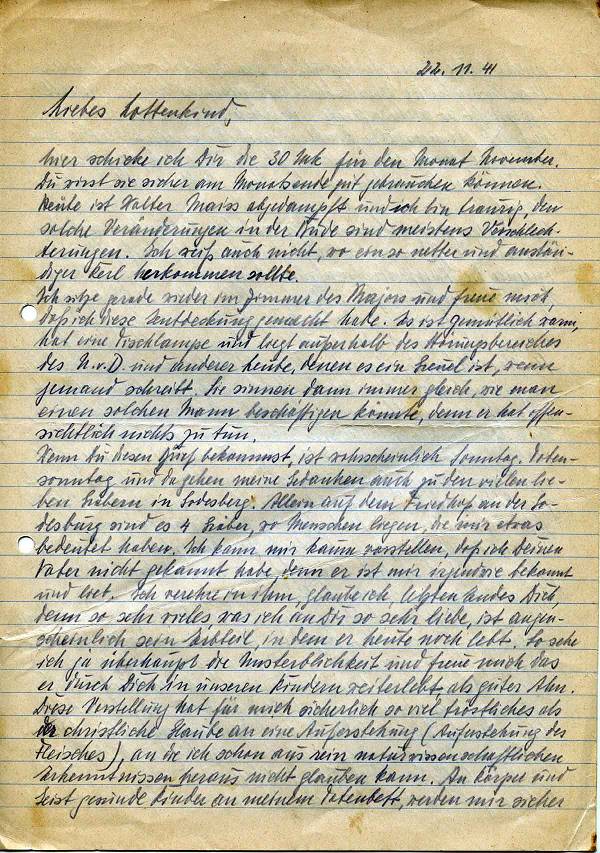 22. 11. 41
Liebes Lottenkind,
hier schicke ich Dir die 30 Mk für den Monat November.
Du wirst sie sicher am Monatsende mit gebrauchen können.
Heute ist Walter Maiss abgedampft und ich bin traurig, den
solche Veränderungen in der Bude sind meistens Verschlech-
terungen. Ich weiß auch nicht, wo ein so netter und anstän-
diger Kerl herkommen sollte.
Ich sitze gerade wieder im Zimmer des Majors und freue mich,
daß ich diese Entdeckung gemacht habe. Es ist gemütlich warm,
hat eine Tischlampe und liegt außerhalb des Störungsbereiches
des U.v.D. und anderer Leute, denen es ein Greuel ist, wenn
jemand schreibt. Sie sinnen dann immer gleich, wie man
einen solchen Mann beschäftigen könnte, denn er hat offen-
sichtlich nichts zu tun.
Wenn Du diesen Brief bekommst, ist wahrscheinlich Sonntag. Toten-
sonntag und da gehen meine Gedanken auch zu den vielen lie-
ben Gräbern in Godesberg. Allein auf dem Friedhof an der Go-
desburg sind es 4 Gräber, wo Menschen liegen, die mir etwas
bedeutet haben. Ich kann mir kaum vorstellen, daß ich Deinen
Vater nicht gekannt habe, denn er ist mir irgendwie bekannt
und lieb. Ich verehre in ihm, glaube ich, letzten Endes Dich,
denn so sehr vieles was ich an Dir so sehr liebe, ist augen-
scheinlich sein Erbteil, in dem er heute noch lebt. So sehe
ich ja überhaupt die Unsterblichkeit und freue mich das
er durch Dich in unseren Kindern weiterlebt, als guter Ahn.
Diese Vorstellung hat für mich sicherlich so viel tröstliches als
der christliche Glaube an eine Auferstehung (Auferstehung des
Fleisches), an die ich schon aus rein naturwissenschaftlichen
Erkenntnissen heraus nicht glauben kann. An Körper und
Geist gesunde Kinder an meinem Totenbett, werden mir sicher